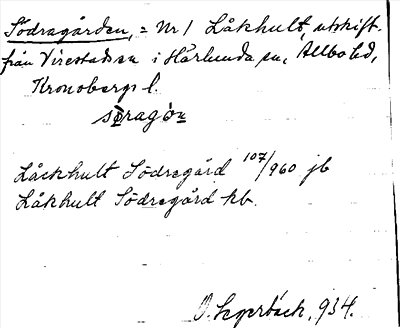 Södragården, = Nr 1 Låkhult, utskift.
från Virestadsn i Härlunda sn, Allbo hd,
Kronobergs l.
Låckhult Södregård 107/960 jb
Låkhult Södregård kb.
O. Segerbäck, 934.